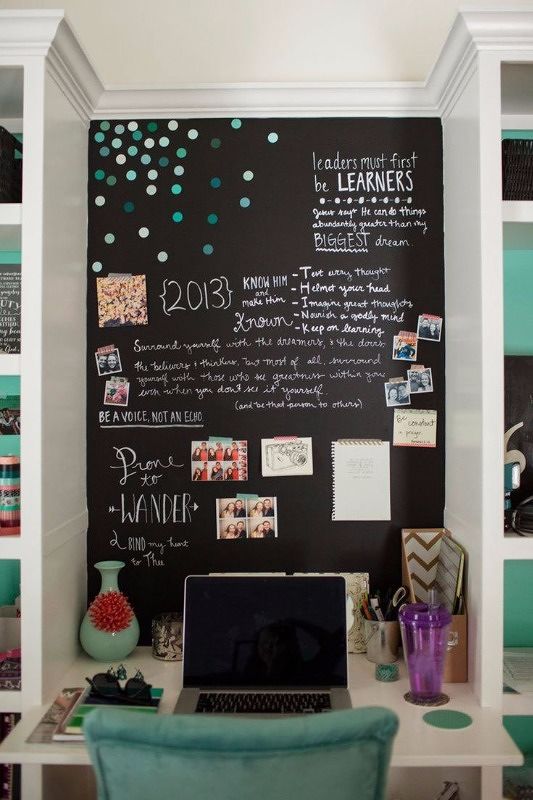 leaders must first
be LEARNERS
Jesus says He can do things
abundantly greater than my
BIGGEST dream.
{2013}
KNOW HIM
and
make Him
Known
- Test every thought
- Helmet your head
- Imagine great thoughts
- Nourish a godly mind
- Keep on learning
Surround yourself with the dreamers, & the doers
the believers & thinkers, but most of all, surround
yourself with those who see greatness within you
even when you don't see it yourself.
(and be that person to others)
BE A VOICE, NOT AN ECHO.
Be
constant
in prayer.
Prone
to
WANDER
BIND my heart
to Thee